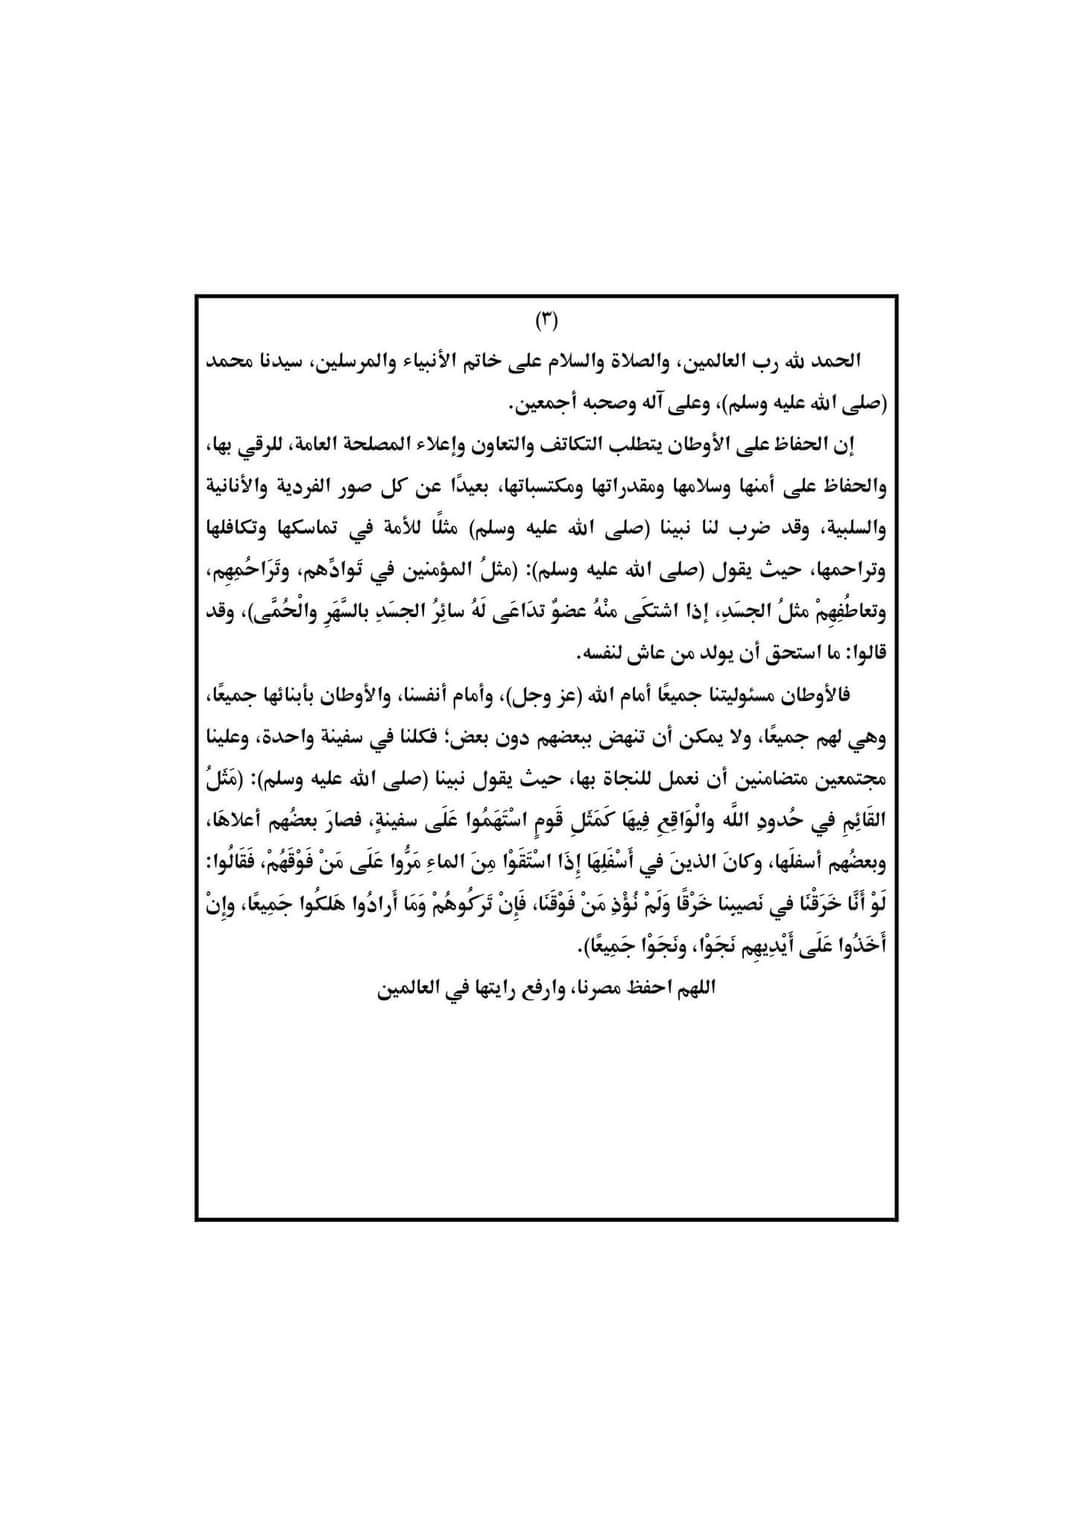 (٣)
الحمد لله رب العالمين، والصلاة والسلام على خاتم الأنبياء والمرسلين، سيدنا محمد
(صلى الله عليه وسلم)، وعلى آله وصحبه أجمعين.
إن الحفاظ على الأوطان يتطلب التكاتف والتعاون وإعلاء المصلحة العامة، للرقي بها،
والحفاظ على أمنها وسلامها ومقدراتها ومكتسباتها، بعيدًا عن كل صور الفردية والأنانية
والسلبية، وقد ضرب لنا نبينا (صلى الله عليه وسلم) مثلًا للأمة في تماسكها وتكافلها
وتراحمها، حيث يقول (صلى الله عليه وسلم): (مثلُ المؤمنين في تَوادِّهم، وتَرَاحُمِهِم،
وتعاطُفِهِمْ مثلُ الجسَدِ، إذا اشتكَى منْهُ عضوٌ تدَاعَى لَهُ سائِرُ الجسَدِ بالسَّهَرِ والْحُمَّى)، وقد
قالوا: ما استحق أن يولد من عاش لنفسه.
فالأوطان مسئوليتنا جميعًا أمام الله (عز وجل)، وأمام أنفسنا، والأوطان بأبنائها جميعًا،
وهي لهم جميعًا، ولا يمكن أن تنهض ببعضهم دون بعض؛ فكلنا في سفينة واحدة، وعلينا
مجتمعين متضامنين أن نعمل للنجاة بها، حيث يقول نبينا (صلى الله عليه وسلم): (مَثَلُ
القَائِمِ في حُدودِ اللَّه والْوَاقِعِ فِيهَا كَمَثَلِ قَومٍ اسْتَهَمُوا عَلَى سفينةٍ، فصارَ بعضُهم أعلاهَا،
وبعضُهم أسفلَها، وكانَ الذينَ في أَسْفَلِهَا إِذَا اسْتَقَوْا مِنَ الماءِ مَرُّوا عَلَى مَنْ فَوْقَهُمْ، فَقَالُوا:
لَوْ أَنَّا خَرَقْنَا في نَصيبِنا خَرْقًا وَلَمْ نُؤْذِ مَنْ فَوْقَنَا، فَإِنْ تَرَكُوهُمْ وَمَا أَرادُوا هَلكُوا جَمِيعًا، وإِنْ
أَخَذُوا عَلَى أَيْدِيهِم نَجَوْا، ونَجَوْا جَمِيعًا).
اللهم احفظ مصرنا، وارفع رايتها في العالمين